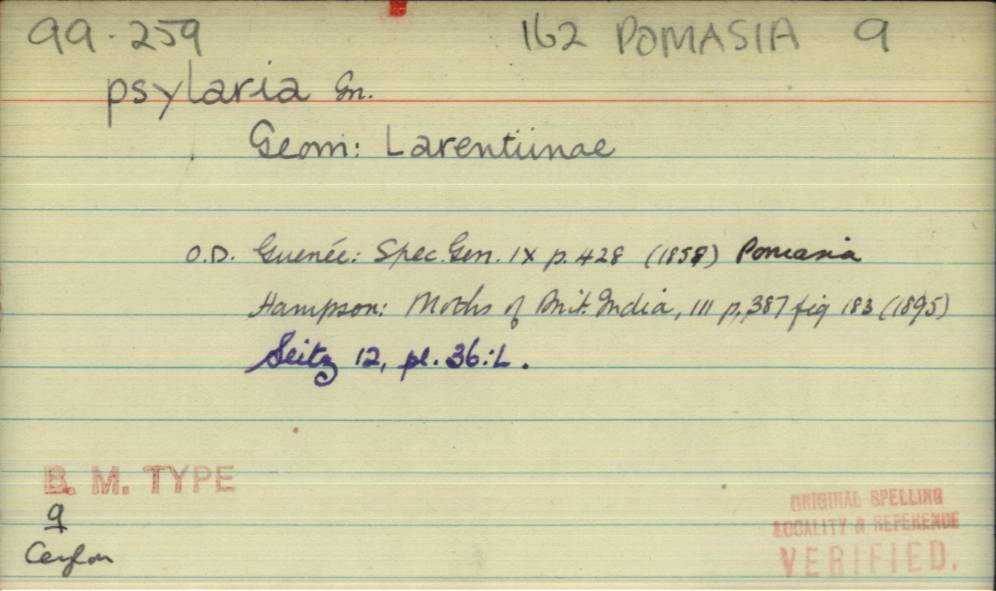 99.259 162 POMASIA 9
psylaria Gn.
Geom: Larentiinae
O.D. Guenée: Spec. Gen. IX p. 428 (1858) Pomasia
Hampson: Moths of Brit. India, III p. 387 fig 183 (1895)
Seitz 12, pl. 36:L.
B. M. TYPE
♀
Ceylon
ORIGINAL SPELLING
LOCALITY & REFERENCE
VERIFIED.